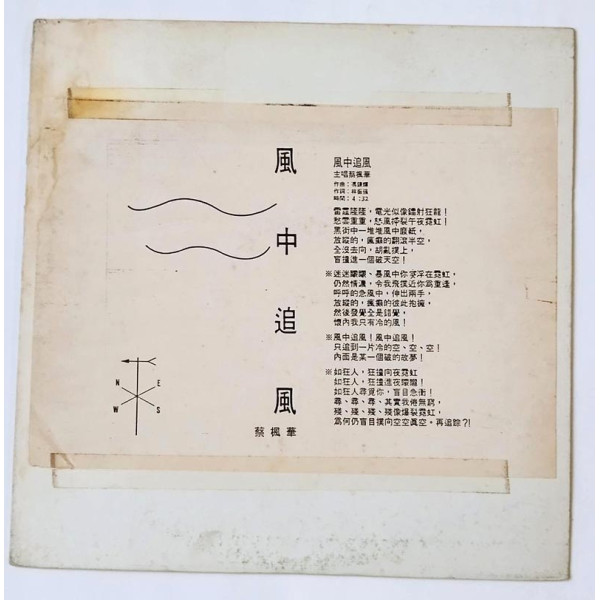 風
中
追
風
蔡楓華
N
E
W
S
風中追風
主唱蔡楓華
作曲：馮鏡輝
作詞：林振強
時間：4：32
雷霆隆隆，電光似像鐳射狂龍！
愁雲重重，怒風捽裂午夜霓虹！
黑街中一堆堆風中磨砥，
放蹤的，瘋癲的翻滾半空，
全沒去向，胡亂撲上，
盲撞進一個破天空！
※迷迷矇矇、暴風中你浮在霓虹，
仍然情濃，令我飛撲近你為重逢，
呼呼的急風中，伸出兩手，
放蹤的，瘋癲的彼此抱擁，
然後發覺全是錯覺，
懷內我只有冷的風！
※風中追風！風中追風！
只追到一片冷的空、空、空！
內面是某一個破的故夢！
※如狂人，狂撞向夜霓虹
如狂人，狂撞進夜矇矓！
如狂人尋覓你，盲目急衝！
尋、尋、尋、其實我倦無窮，
殘、殘、殘、殘像爆裂霓虹，
為何仍盲目撲向空空真空。再追踪?!